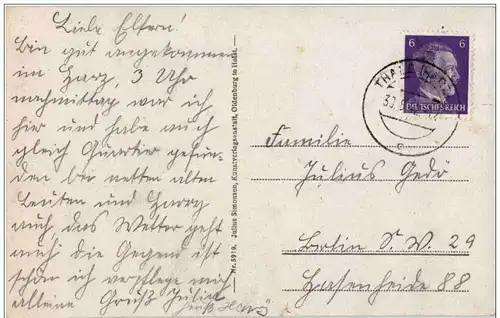 Liebe Eltern!
Bin gut angekommen
im Harz, 3 Uhr
nachmittag war ich
hier und habe auch
gleich Quartier gefun-
den bei netten alten
Leuten und
auch das Wetter geht
auch die Gegend ist
schön ich verpflege mich
alleine Gruß Julius
Gruß
Nr. 5919. Julius Simonsen, Kunstverlagsanstalt, Oldenburg in Holst.
6 6
DEUTSCHES REICH
THALE
Familie
Julius Gedö
Berlin S.W. 29
Hasenheide 88